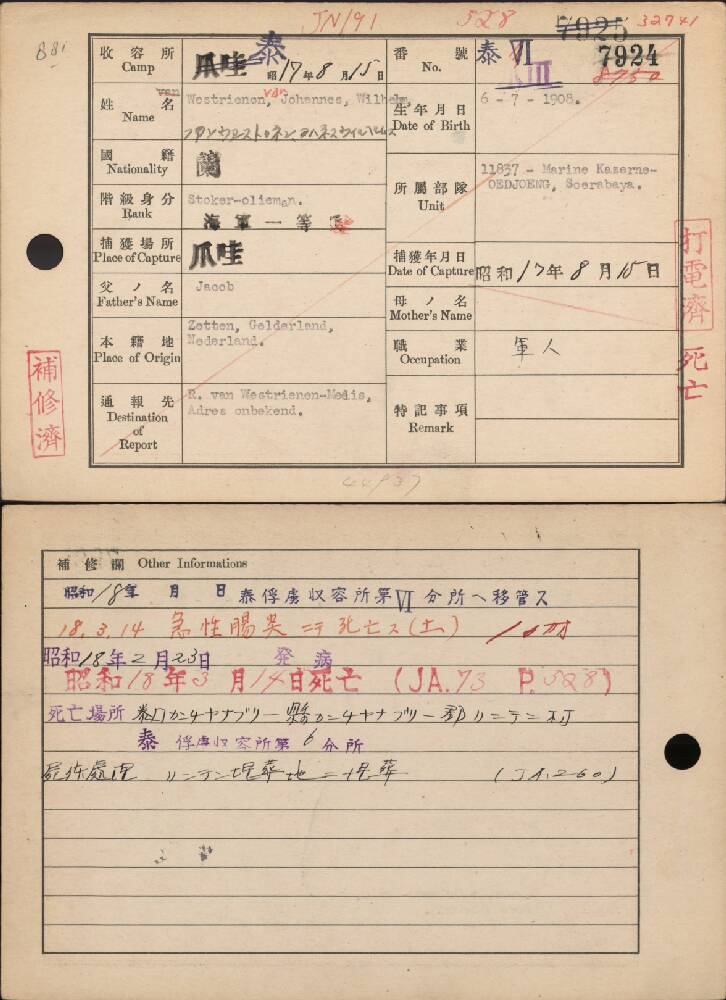 JN/91 528 7925 32741
881
収容所 Camp 爪哇 泰 昭17年8月15日
番號 No. 泰 VI XIII 7924 8750
姓名 Name van Westrienen, van Johannes, Wilhelm,
生年月日 Date of Birth 6-7-1908.
國籍 Nationality 蘭
階級身分 Rank Stoker-olieman.
海軍一等
所屬部隊 Unit 11837 - Marine Kazerne-
OEDJOENG, Soerabaya.
捕獲場所 Place of Capture 爪哇
捕獲年月日 Date of Capture 昭和17年8月15日
父ノ名 Father's Name Jacob
母ノ名 Mother's Name
本籍地 Place of Origin Zetten, Gelderland,
Nederland.
職業 Occupation 軍人
通報先 Destination of Report R. van Westrienen-Medis,
Adres onbekend.
特記事項 Remark
打電濟
死亡
補修濟
44937
補修欄 Other Informations
昭和18年 月 日 泰俘虜収容所第VI分所ヘ移管ス
18.3.14 急性腸炎ニテ死亡ス(土)
昭和18年2月23日 発病
昭和18年3月14日死亡 (JA.73 P.528)
死亡場所 泰国カンチヤナブリー縣カンチヤナブリー郡リンテン村
泰俘虜収容所第6分所
屍体處理 リンテン埋葬地ニ埋葬 (JA.260)